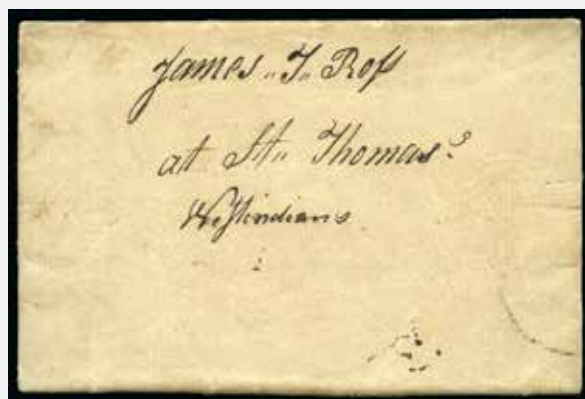 James „T„ Roß
at St„ Thomas's
Westindians